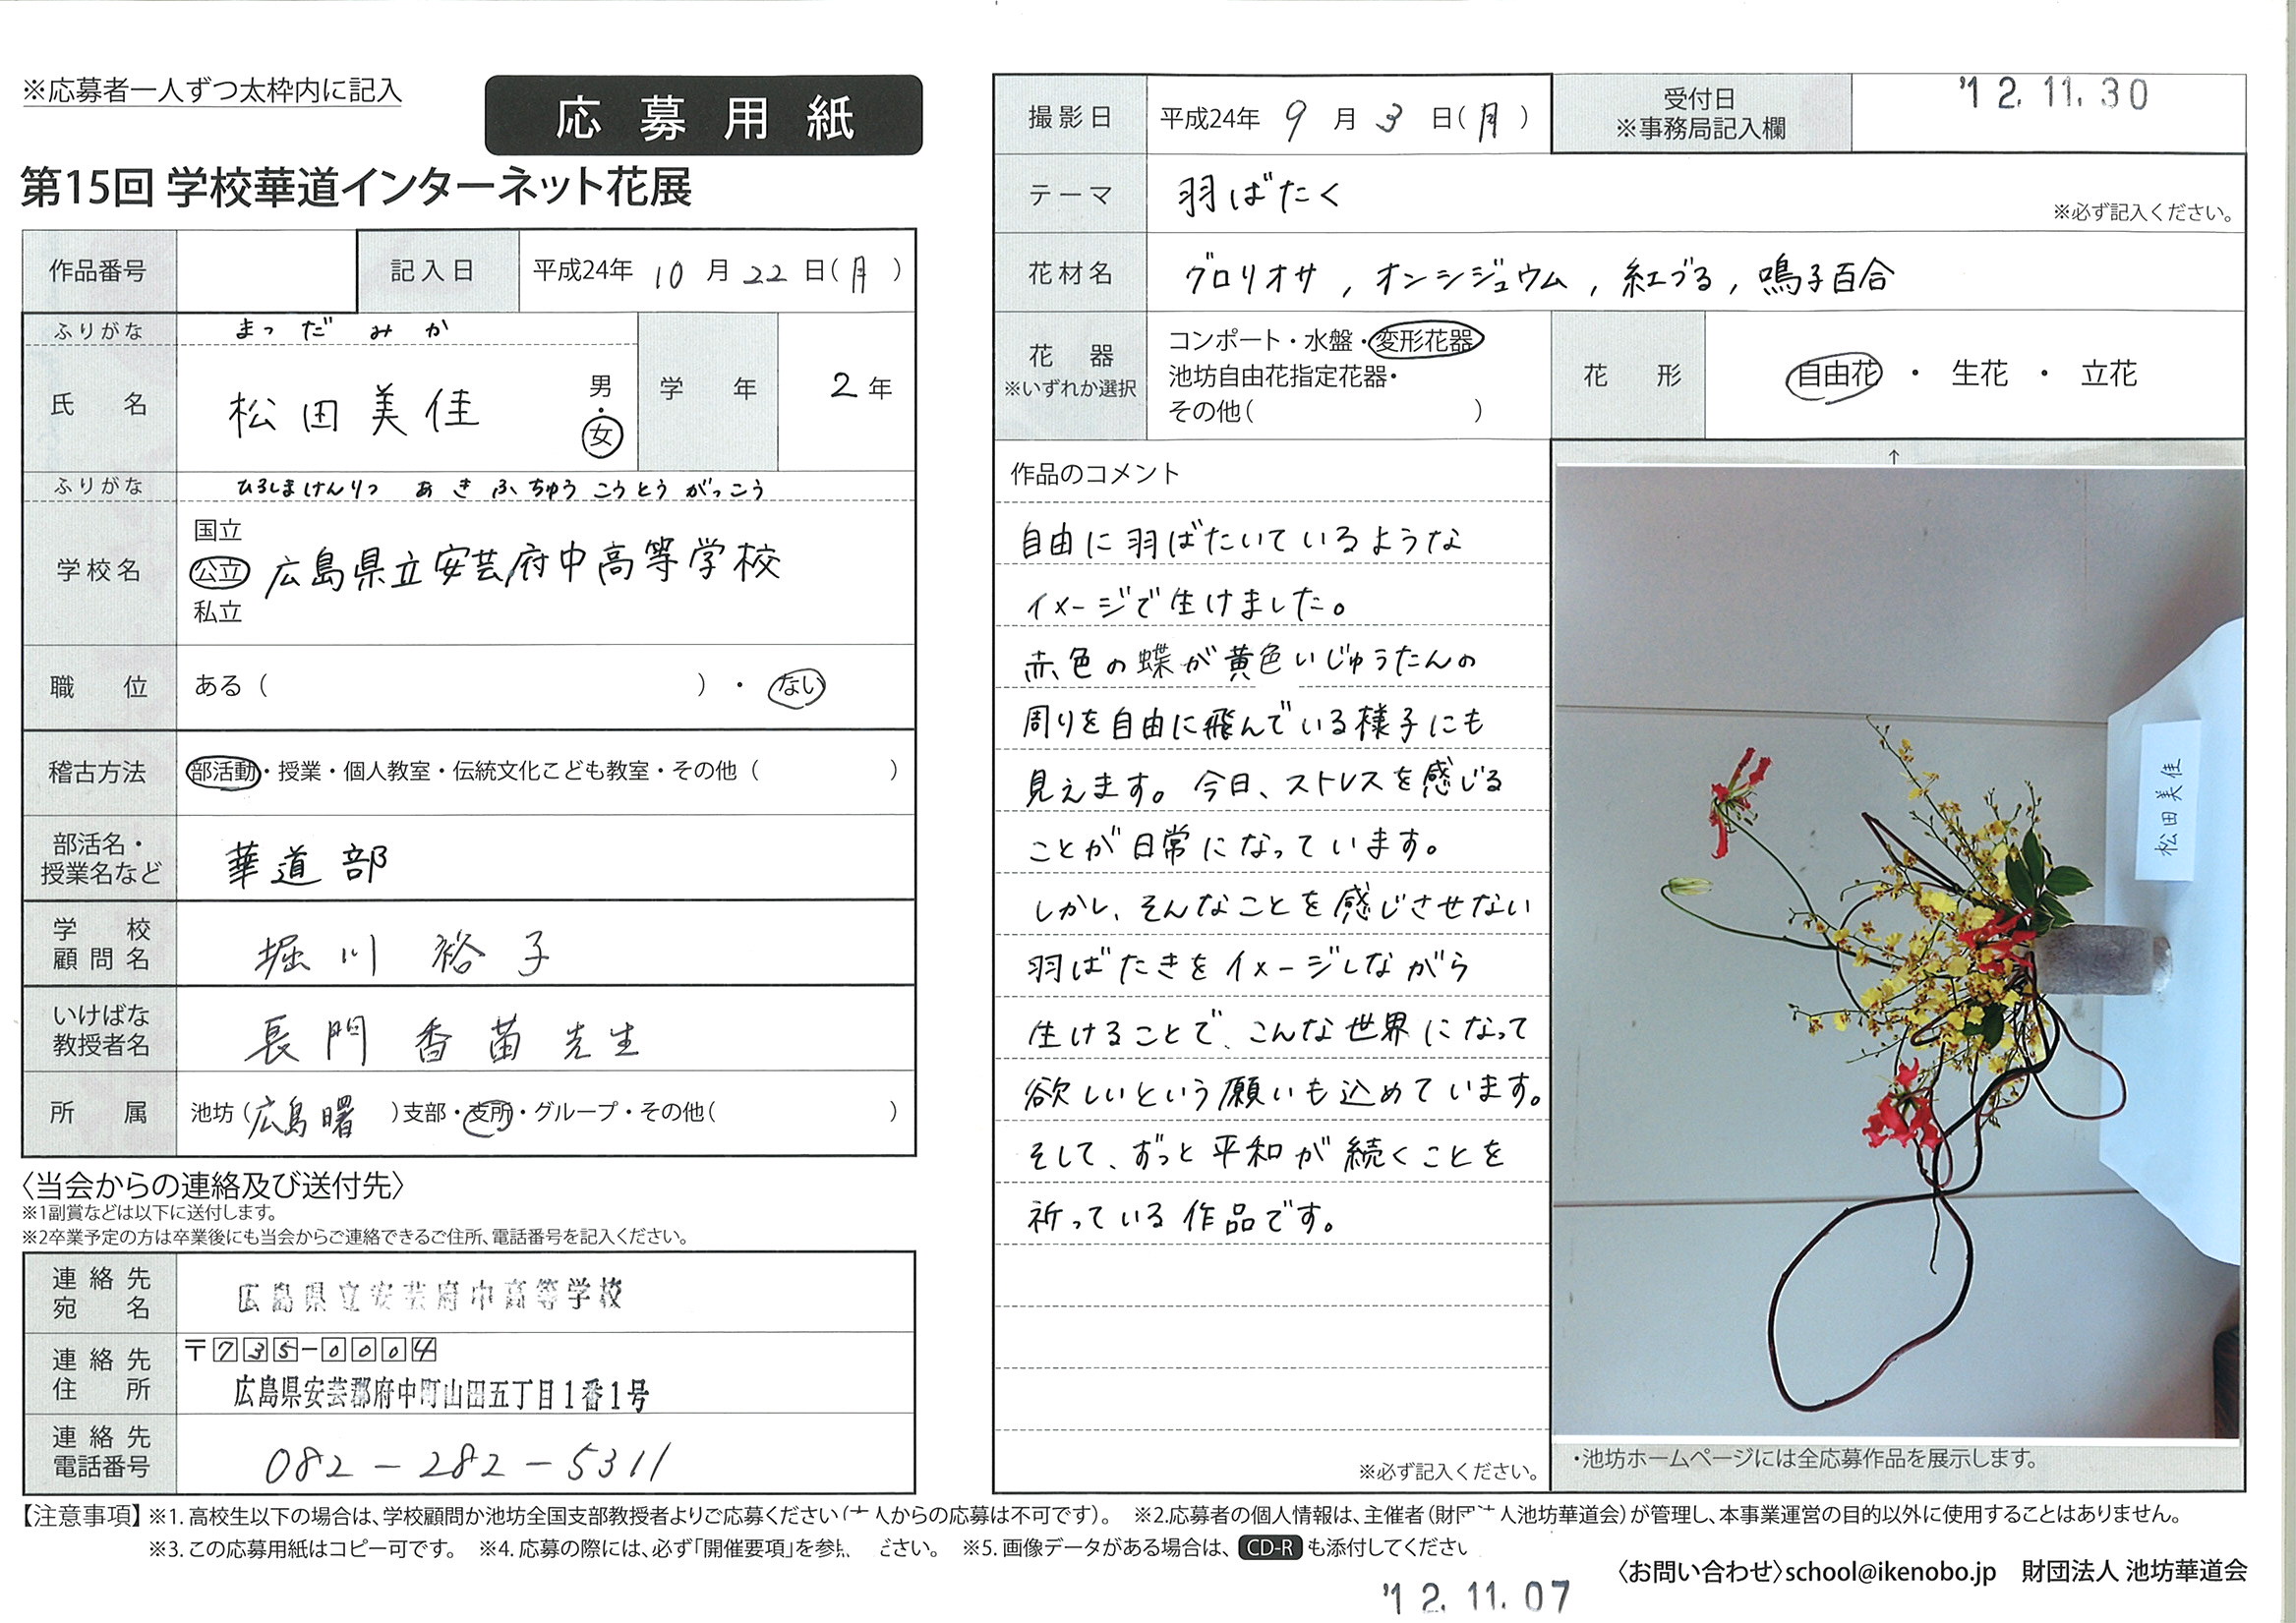 ※応募者一人ずつ太枠内に記入
応募用紙
第15回 学校華道インターネット花展
作品番号
記入日 平成24年 10月22日(月)
ふりがな まつだ みか
氏名 松田美佳 男・女
学年 2年
ふりがな ひろしまけんりつ あきふちゅうこうとうがっこう
学校名 国立 公立 私立 広島県立安芸府中高等学校
職位 ある( )・ない
稽古方法 部活動・授業・個人教室・伝統文化こども教室・その他( )
部活名・授業名など 華道部
学校顧問名 堀川 裕子
いけばな教授者名 長門 香苗 先生
所属 池坊(広島曙)支部・支所・グループ・その他( )
〈当会からの連絡及び送付先〉
※1副賞などは以下に送付します。
※2卒業予定の方は卒業後にも当会からご連絡できるご住所、電話番号を記入ください。
連絡先宛名 広島県立安芸府中高等学校
連絡先住所 〒735-0004
広島県安芸郡府中町山田五丁目1番1号
連絡先電話番号 082-282-5311
撮影日 平成24年 9月3日(月)
受付日 ※事務局記入欄 '12.11.30
テーマ 羽ばたく ※必ず記入ください。
花材名 グロリオサ,オンシジュウム,紅づる,鳴子百合
花器 ※いずれか選択
コンポート・水盤・変形花器
池坊自由花指定花器・
その他( )
花形 自由花・生花・立花
作品のコメント
自由に羽ばたいているような
イメージで生けました。
赤色の蝶が黄色いじゅうたんの
周りを自由に飛んでいる様子にも
見えます。今日、ストレスを感じる
ことが日常になっています。
しかし、そんなことを感じさせない
羽ばたきをイメージしながら
生けることで、こんな世界になって
欲しいという願いも込めています。
そして、ずっと平和が続くことを
祈っている作品です。
※必ず記入ください。
↑
松田美佳
・池坊ホームページには全応募作品を展示します。
【注意事項】※1.高校生以下の場合は、学校顧問か池坊全国支部教授者よりご応募ください(人からの応募は不可です)。 ※2.応募者の個人情報は、主催者(財団人池坊華道会)が管理し、本事業運営の目的以外に使用することはありません。
※3.この応募用紙はコピー可です。 ※4.応募の際には、必ず「開催要項」を参ださい。 ※5.画像データがある場合は、CD-Rも添付してください
〈お問い合わせ〉school@ikenobo.jp 財団法人 池坊華道会
'12.11.07